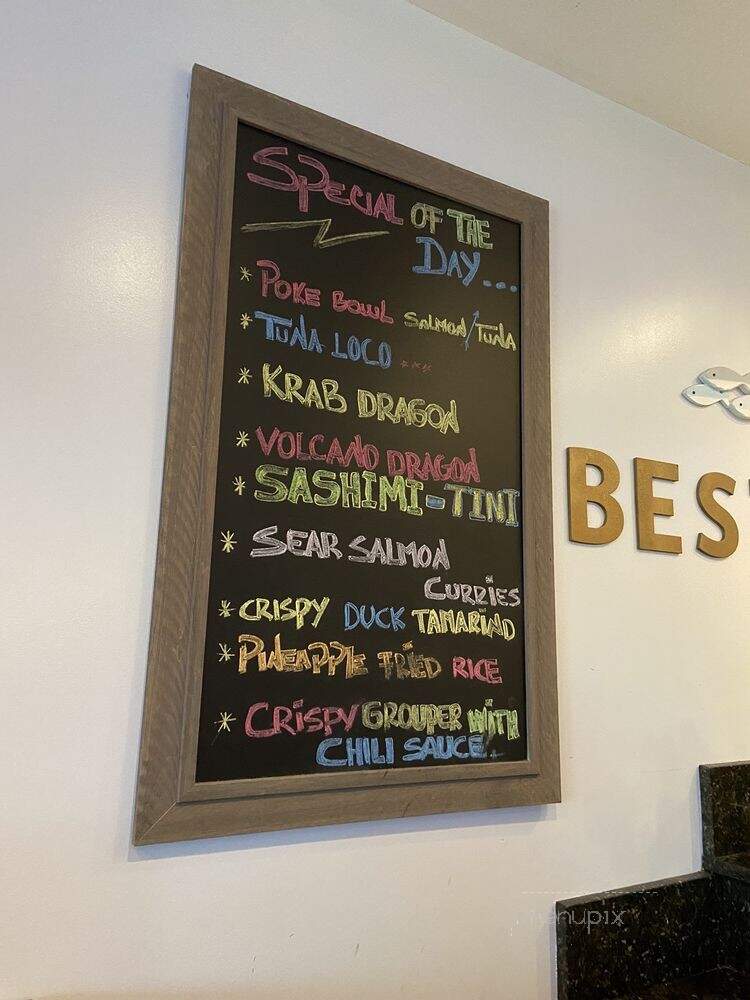 SPECIAL OF THE
DAY...
* POKE BOWL SALMON/TUNA
* TUNA LOCO ***
* KRAB DRAGON
* VOLCANO DRAGON
* SASHIMI-TINI
* SEAR SALMON
CURRIES
* CRISPY DUCK TAMARIND
* PINEAPPLE FRIED RICE
* CRISPY GROUPER WITH
CHILI SAUCE.
BES
menupix